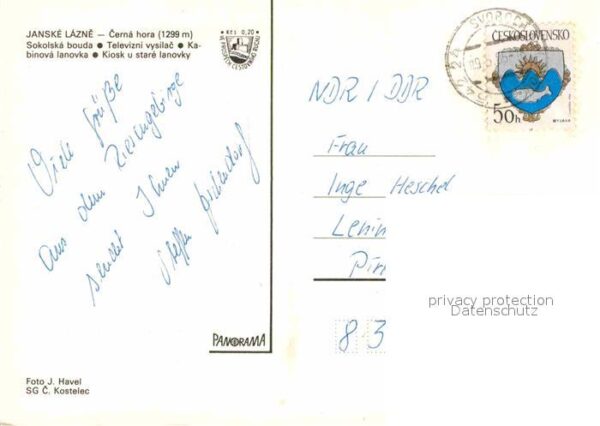 JANSKÉ LÁZNĚ — Černá hora (1299 m)
Sokolská bouda ● Televizní vysílač ● Ka-
binová lanovka ● Kiosk u staré lanovky
Kčs 0,20
Viele Grüße
aus dem Riesengebirge
sendet Ihnen
Steffen
PANORAMA
Foto J. Havel
SG Č. Kostelec
SVOBODA
ČESKOSLOVENSKO
50h
NDR / DDR
Frau
Inge Heschel
Lenin
Pir
83
privacy protection
Datenschutz